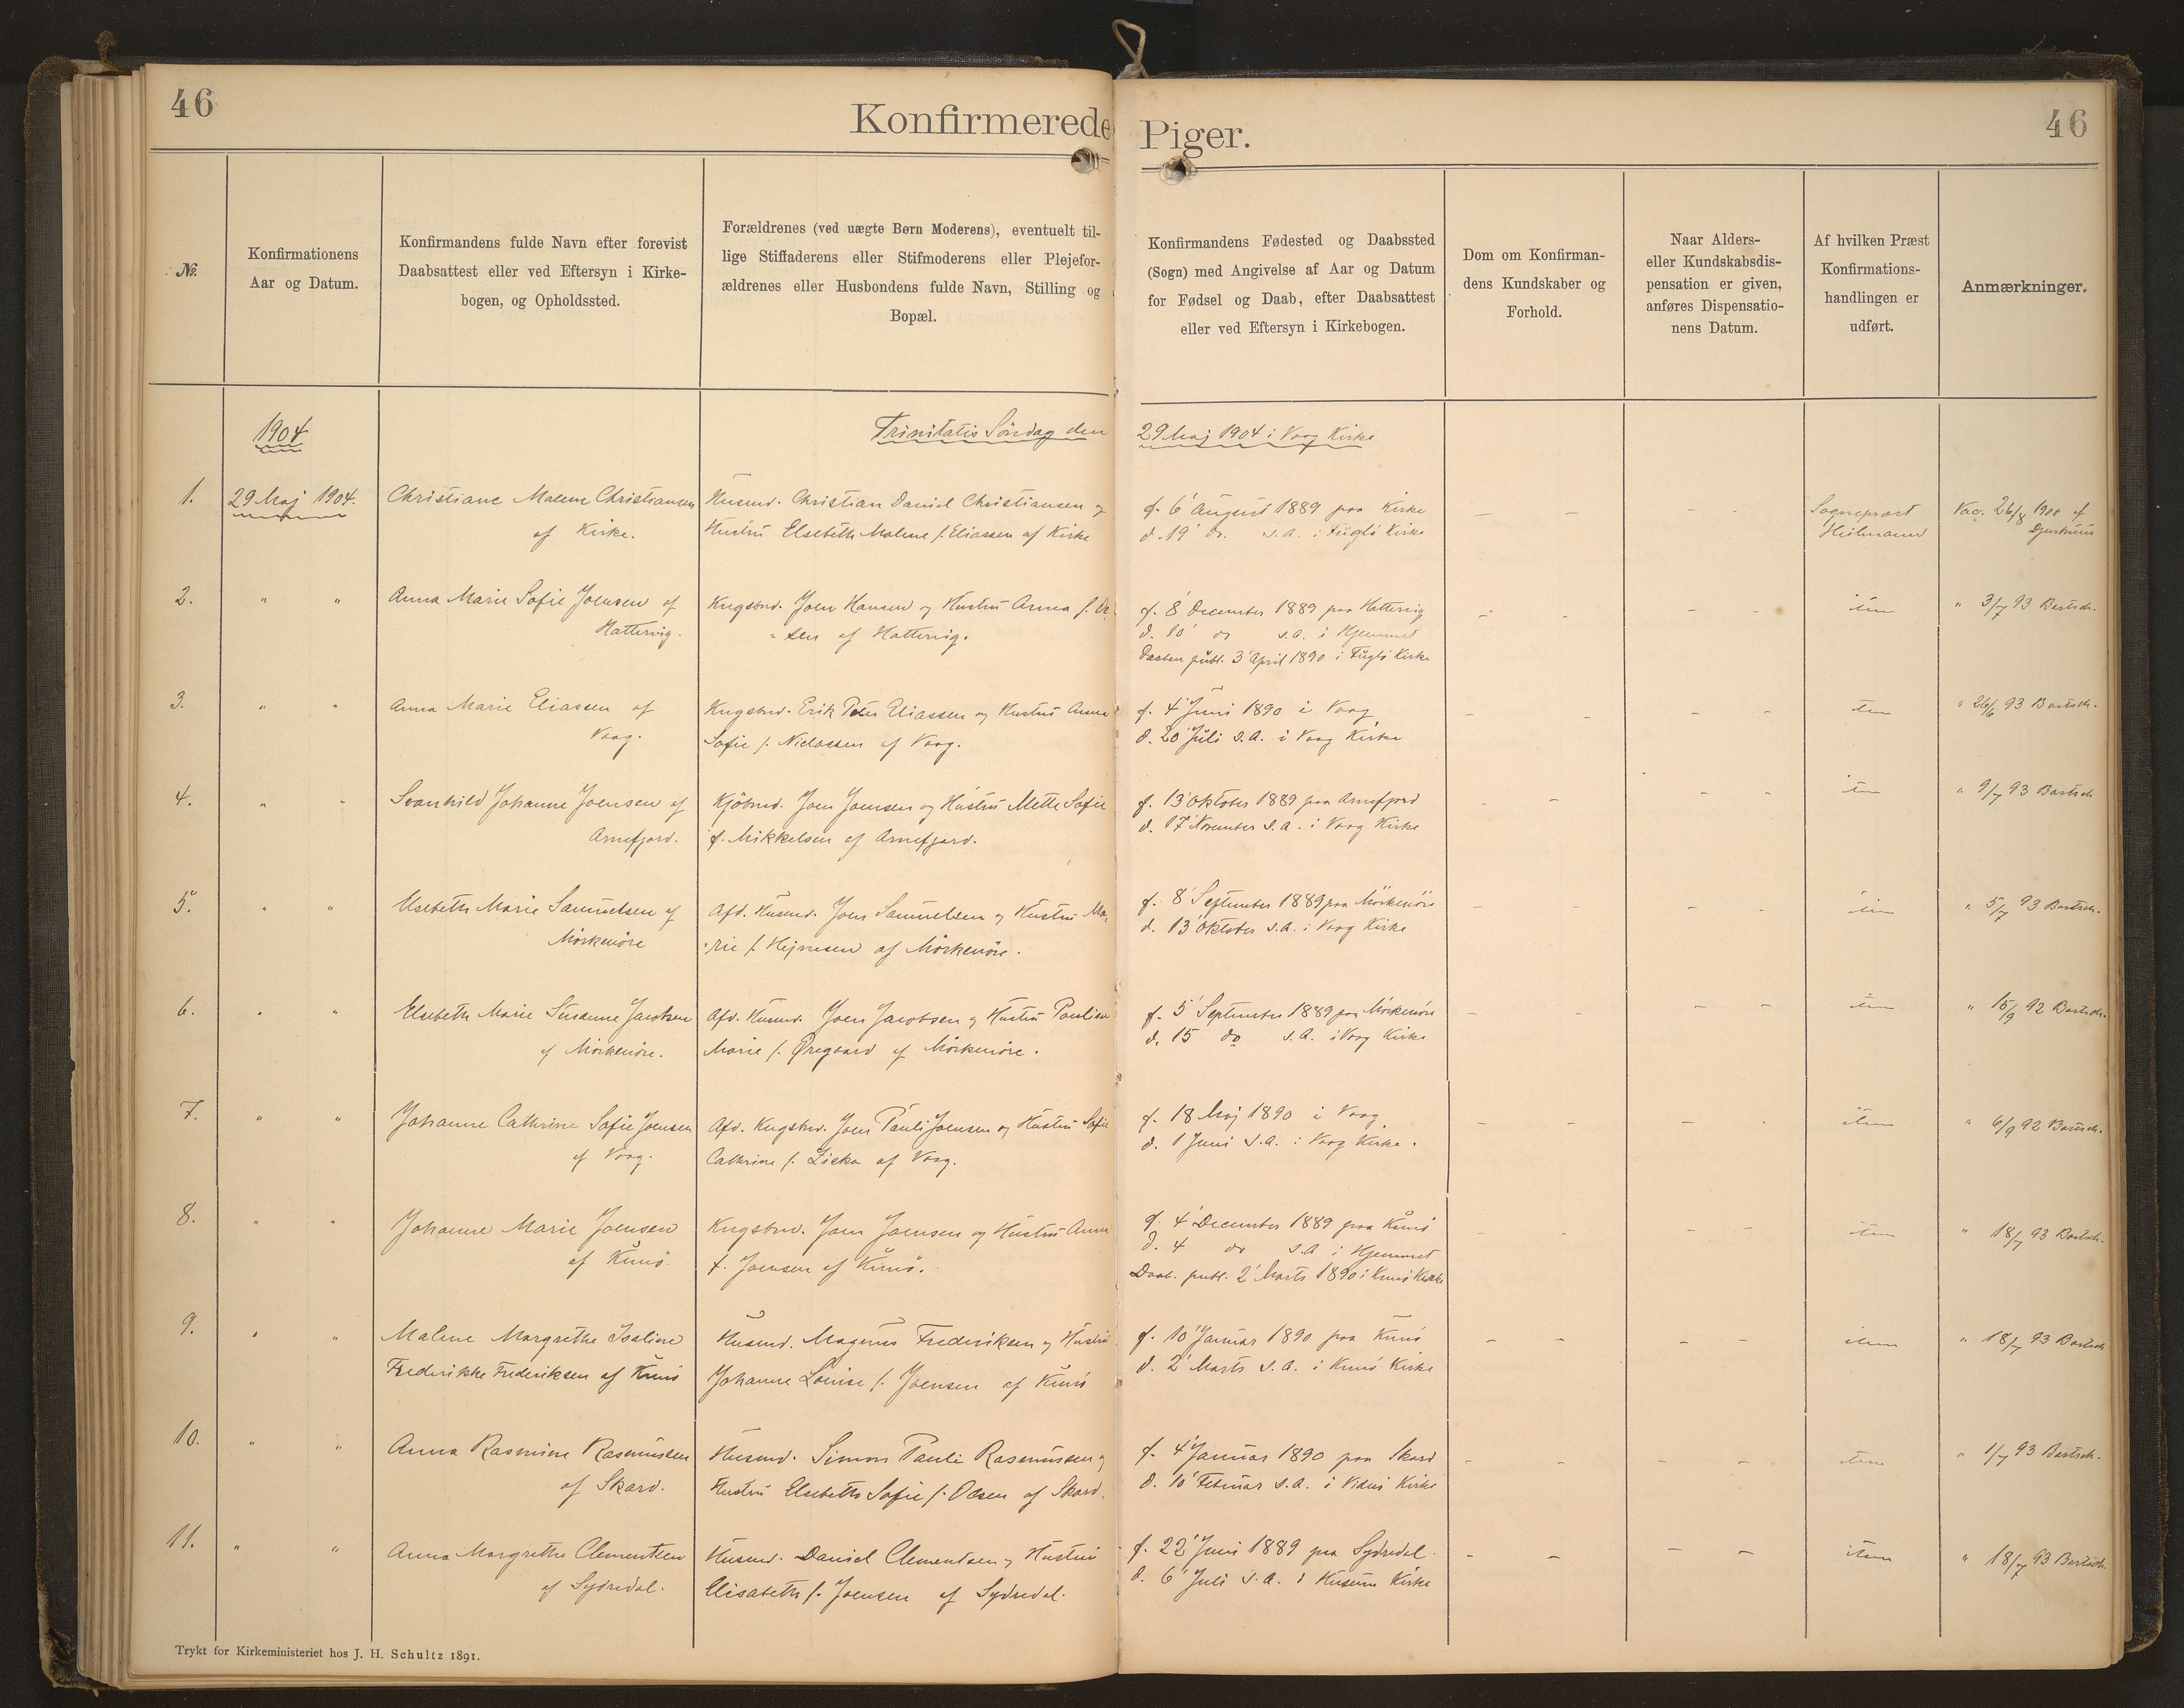 46
Konfirmerede Piger.
46
No.
Konfirmationens
Aar og Datum.
Konfirmandens fulde Navn efter forevist
Daabsattest eller ved Eftersyn i Kirke-
bogen, og Opholdssted.
Forældrenes (ved uægte Børn Moderens), eventuelt til-
lige Stiffaderens eller Stifmoderens eller Plejefor-
ældrenes eller Husbondens fulde Navn, Stilling og
Bopæl.
Konfirmandens Fødested og Daabssted
(Sogn) med Angivelse af Aar og Datum
for Fødsel og Daab, efter Daabsattest
eller ved Eftersyn i Kirkebogen.
Dom om Konfirman-
dens Kundskaber og
Forhold.
Naar Alders-
eller Kundskabsdis-
pensation er given,
anføres Dispensatio-
nens Datum.
Af hvilken Præst
Konfirmations-
handlingen er
udført.
Anmærkninger.
1904
Trinitatis Söndag den 29 Maj 1904 i Vaag Kirke
1.
29 Maj 1904.
Christiane Malene Christiansen
af Kirke.
Husmd. Christian Daniel Christiansen og
Hustru Elsebeth Malene f. Eliassen af Kirke
f. 6' August 1889 paa Kirke
d. 19' do. s.a. i Fuglö Kirke
— —
- -
Sognepræst
Heilmann
Vac. 26/8 1900 af
2.
" "
Anna Marie Sofie Joensen af
Hattervig.
Kngsbnd. Joen Hansen og Hustru Anna f.
sen af Hattervig.
f. 8' December 1889 paa Hattervig
d. 10' do s.a. i Hjemmet
Daaben publ. 3' April 1890 i Fuglö Kirke
- -
- -
item
" 3/7 93 Bartsch.
3.
" "
Anna Marie Eliassen af
Vaag.
Kngsbnd. Erik Peter Eliassen og Hustru Anna
Sofie f. Niclassen af Vaag.
f. 4' Juni 1890 i Vaag
d. 20' Juli s.a. i Vaag Kirke
- -
- -
item
" 26/6 93 Bartsch.
4.
" "
Svanhild Johanne Joensen af
Arnefjord.
Kjöbmd. Joen Joensen og Hustru Mette Sofie
f. Mikkelsen af Arnefjord.
f. 13' Oktober 1889 paa Arnefjord
d. 17' November s.a. i Vaag Kirke
- -
- -
item
" 9/7 93 Bartsch
5.
" "
Elsebeth Marie Samuelsen af
Mörkenöre
Afd. Husmd. Joen Samuelsen og Hustru Ma-
rie f. Hejnesen af Mörkenöre.
f. 8' September 1889 paa Mörkenöre
d. 13' Oktober s.a. i Vaag Kirke
- -
- -
item
" 5/7 93 Bartsch.
6.
" "
Elsebeth Marie Susanne Jacobsen
af Mörkenöre.
Afd. Husmd. Joen Jacobsen og Hustru Pauline
Marie f. Øregaard af Mörkenöre.
f. 5' September 1889 paa Mörkenöre
d. 15 do s.a. i Vaag Kirke
- -
- -
item
" 15/9 92 Bartsch.
7.
" "
Johanne Cathrine Sofie Joensen
af Vaag.
Afd. Kngsbnd. Joen Pauli Joensen og Hustru Sofie
Cathrine f. Ziska af Vaag.
f. 18 Maj 1890 i Vaag
d. 1 Juni s.a. i Vaag Kirke.
- -
- -
item
" 6/9 92 Bartsch.
8.
" "
Johanne Marie Joensen
af Kunö.
Kngsbnd. Joen Joensen og Hustru Anna
f. Joensen af Kunö.
f. 4' December 1889 paa Kunö
d. 4 do s.a i Hjemmet
Daab. publ. 2' Marts 1890 i Kunö Kirke
- -
- -
item
" 18/7 93 Bartsch.
9.
" "
Malene Margrethe Isaline
Frederikke Frederiksen af Kunö
Husmd. Magnus Frederiksen og Hustru
Johanne Louise f. Joensen af Kunö
f. 10' Januar 1890 paa Kunö
d. 2' Marts s.a. i Kunö Kirke
- -
- -
item
" 18/7 93 Bartsch
10.
" "
Anna Rasmine Rasmussen
af Skard.
Husmd. Simon Pauli Rasmussen og
Hustru Elsebeth Sofie f. Olsen af Skard.
f. 4' Januar 1890 paa Skard
d. 10' Februar s.a. i Viderö Kirke
- -
- -
item
" 1/7 93 Bartsch.
11.
" "
Anna Margrethe Clementsen
af Sydredal.
Husmd. Daniel Clementsen og Hustru
Elisabeth f. Joensen af Sydredal.
f. 22' Juni 1889 paa Sydredal.
d. 6' Juli s.a. i Husum Kirke
- -
- -
item
" 18/7 93 Bartsch.
Trykt for Kirkeministeriet hos J. H. Schultz 1891.